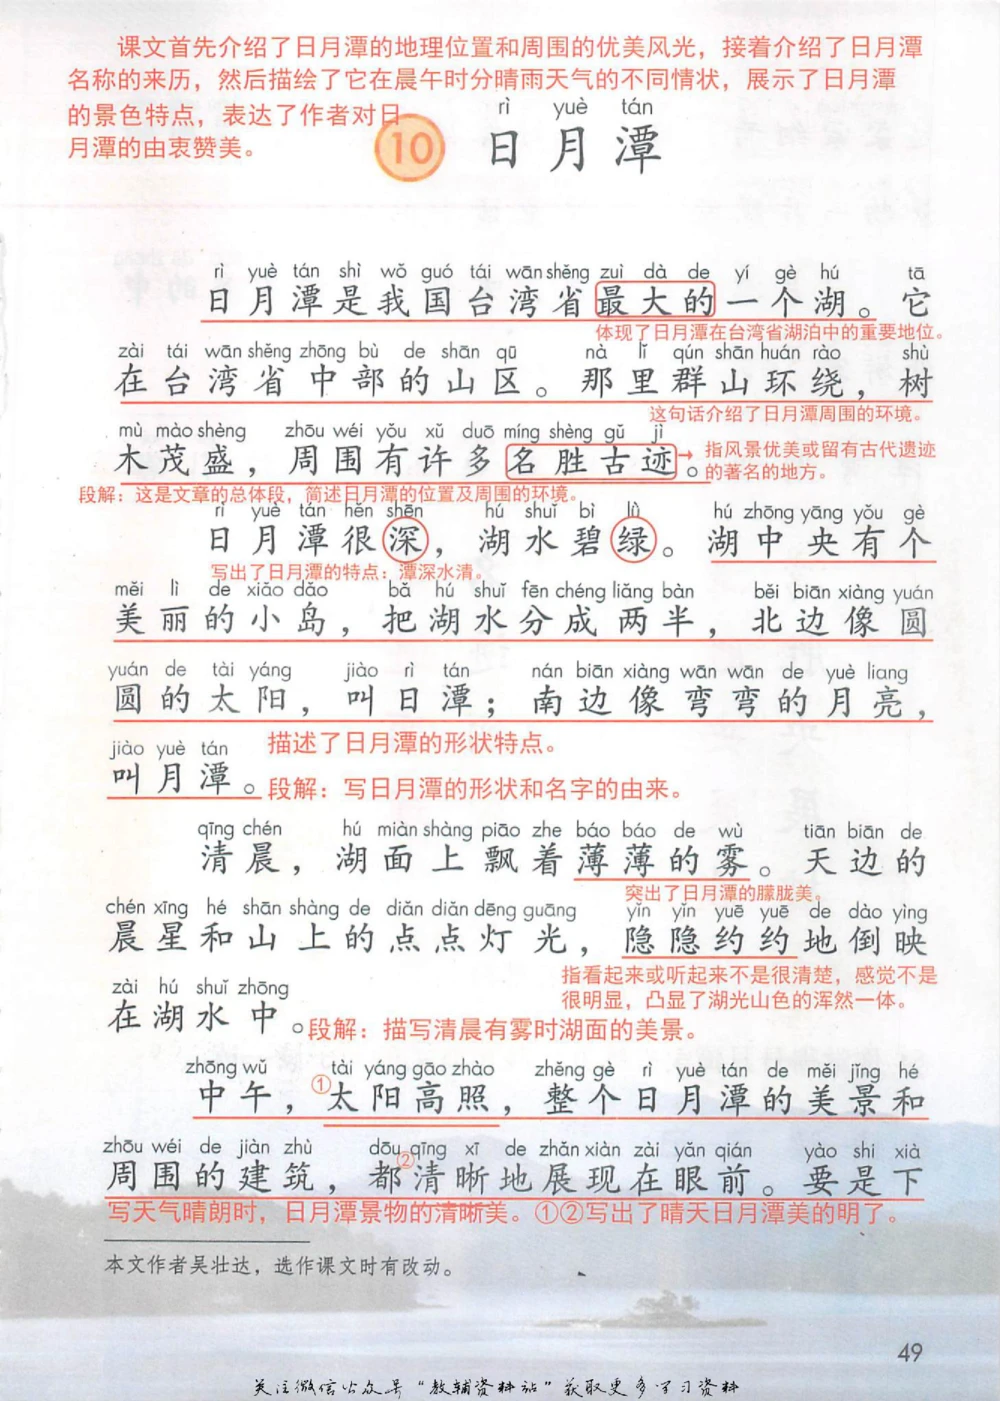 课文首先介绍了日月潭的地理位置和周围的优美风光，接着介绍了日月潭
名称的来历，然后描绘了它在晨午时分晴雨天气的不同情状，展示了日月潭
的景色特点，表达了作者对日
月潭的由衷赞美。
rì yuè tán
10 日月潭
rì yuè tán shì wǒ guó tái wān shěng zuì dà de yí gè hú tā
日月潭是我国台湾省最大的一个湖。它
体现了日月潭在台湾省湖泊中的重要地位。
zài tái wān shěng zhōng bù de shān qū nà lǐ qún shān huán rào shù
在台湾省中部的山区。那里群山环绕，树
这句话介绍了日月潭周围的环境。
mù mào shèng zhōu wéi yǒu xǔ duō míng shèng gǔ jì
木茂盛，周围有许多名胜古迹。
指风景优美或留有古代遗迹
的著名的地方。
段解：这是文章的总体段，简述日月潭的位置及周围的环境。
rì yuè tán hěn shēn hú shuǐ bì lǜ hú zhōng yāng yǒu gè
日月潭很深，湖水碧绿。湖中央有个
写出了日月潭的特点：潭深水清。
měi lì de xiǎo dǎo bǎ hú shuǐ fēn chéng liǎng bàn běi biān xiàng yuán
美丽的小岛，把湖水分成两半，北边像圆
yuán de tài yáng jiào rì tán nán biān xiàng wān wān de yuè liang
圆的太阳，叫日潭；南边像弯弯的月亮，
jiào yuè tán
叫月潭。
描述了日月潭的形状特点。
段解：写日月潭的形状和名字的由来。
qīng chén hú miàn shàng piāo zhe báo báo de wù tiān biān de
清晨，湖面上飘着薄薄的雾。天边的
突出了日月潭的朦胧美。
chén xīng hé shān shàng de diǎn diǎn dēng guāng yǐn yǐn yuē yuē de dào yìng
晨星和山上的点点灯光，隐隐约约地倒映
指看起来或听起来不是很清楚，感觉不是
很明显，凸显了湖光山色的浑然一体。
zài hú shuǐ zhōng
在湖水中。
段解：描写清晨有雾时湖面的美景。
zhōng wǔ tài yáng gāo zhào zhěng gè rì yuè tán de měi jǐng hé
中午，①太阳高照，整个日月潭的美景和
zhōu wéi de jiàn zhù dōu qīng xī de zhǎn xiàn zài yǎn qián yào shi xià
周围的建筑，都②清晰地展现在眼前。要是下
写天气晴朗时，日月潭景物的清晰美。①②写出了晴天日月潭美的明了。
本文作者吴壮达，选作课文时有改动。
49
关注微信公众号“教辅资料站”获取更多学习资料